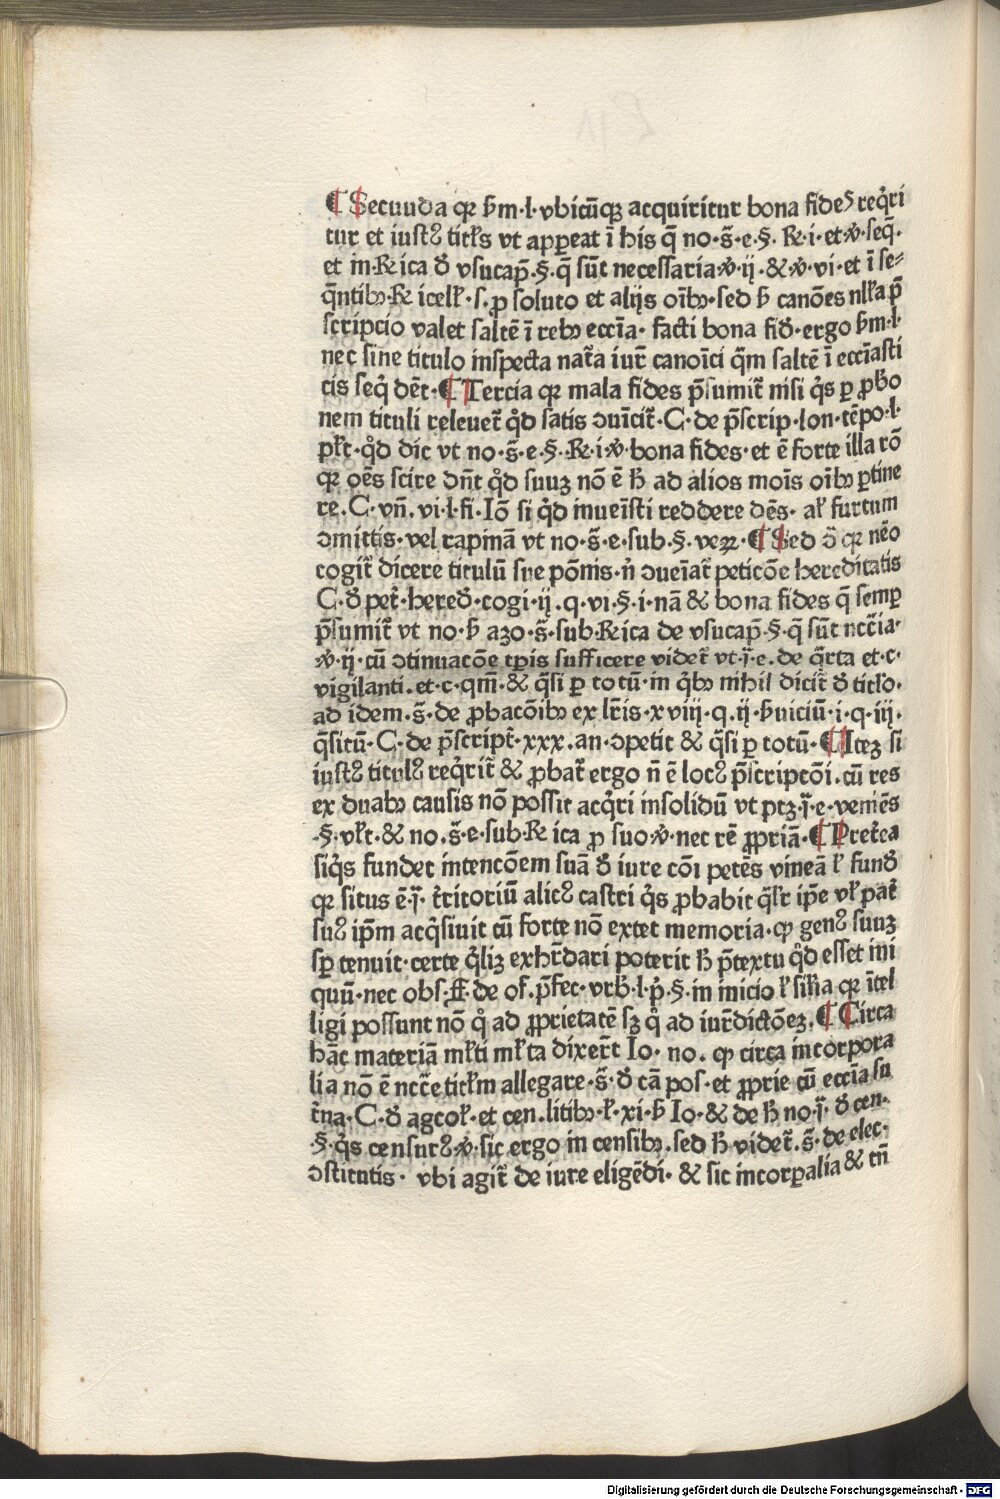 ¶ Secuuda qꝛ ẜm·l·vbicūqꝫ acquiritur bona fideꝰ reqͥri
tur et iustꝰ titƚs vt appeat ī his q̄ no·s̄·e·§· ℞·i·et·ꝟ·seq̄·
et in·℞ica ď vsucap̄·§·q̄ sūt necessaria·ꝟ·ij·&·ꝟ·vi·et ī se⸗
q̄ntibꝫ·℞ icelƚ·s·p soluto et alijs oībꝫ·sed ẜ canōes nlƚa p̄
scripcio valet saltē ī rebꝫ ecc̄ia· facti bona fiď·ergo ẜm·l·
nec sine titulo inspecta nat̄a iur̄ canoīci q̄m saltē ī ecc̄iasti
cis seq̇ dēt·¶ Tercia qꝛ mala fides p̄sumit᷑ nisi q̇s ꝑ ꝓbꝉo
nem tituli releuet᷑ qͦd satis ɔuīcit᷑·C·de p̄scrip·lon·tēpo·l·
pƚt·qͦd dic vt no·s̄·e·§·℞·i·ꝟ·bona fides·et ē forte illa rō
qꝛ oēs scire dn̄t qͦd suuꝫ nō ē ẜ ad alios moīs oībꝫ ꝑtine
re·C·vn̄·vi·l·fi·Iō si qͦd inueīsti reddere dēs· aƚ furtum
ɔmittis·vel rapinā vt no·s̄·e·sub·§·veꝝ·¶ Sed ɔ̄ qꝛ nēo
cogit᷑ dicere titulū sue pōnis·n̄ ɔueīat᷑ peticōe hereditatis
C·ď pet᷑·hereď·cogi·ij·q·vi·§·i·nā & bona fides q̄ semꝑ
p̄sumit᷑ vt no·ẜ azo·s̄·sub·℞ica de vsucap̄·§·q̄ sūt ncc̄ia·
ꝟ·ij·cū ɔtinuacōe tꝑis sufficere videt᷑ vt·ī·e·de q̄rta et·c·
vigilanti·et·c·qm̄·& q̄si ꝑ totū·in q̇bꝫ nihil dicit᷑ ď titƚo·
ad idem·s̄·de ꝓbacōibꝫ ex lr̄is·xviij·q·ij·ẜuiciū·i·q·iij·
q̄situ·C·de p̄script᷑·xxx·an·ɔpetit & q̄si ꝑ totū·¶ Iteꝫ si
iustꝰ titulꝰ reqͥrit᷑ & ꝓbat᷑ ergo n̄ ē locꝰ p̄scriptōi·cū res
ex duabꝫ causis nō possit acqͥri insolidū vt ptꝫ·ī·e·veniēs
·§·vƚt·& no·s̄·e·sub·℞ica ꝓ suo·ꝟ·nec rē ꝓpriā·¶ Pret᷑ea
siq̇s fundet intencōem suā ď iure cōi petēs vineā ƚ funď
qꝛ situs ē·ī· t᷑ritoriū alicꝰ castri q̇s ꝓbabit qͣlr̄ ip̄e vƚ pat᷑
suꝰ ip̄m acq̇siuit cū forte nō extet memoria·ꝙ genꝰ suuꝫ
sꝑ tenuit·certe q̇liꝫ exhr̄dari poterit ẜ p̄textu qͦd esset ini
quū·nec obs·ff·de of·p̄fec·vrƀ·l·p̄·§·in inicio ƚ siƚia qꝛ ītel
ligi possunt nō qͦ ad ꝓprietatē sꝫ qͦ ad iur̄dictōeꝫ·¶ Circa
hāc materiā mƚti mƚta dixer᷑t Io· no· ꝙ circa incorpora
lia nō ē ncc̄e titƚm allegare·s̄·ď cā pos·et ꝓprie cū ecc̄ia su
t᷑na·C·ď agcoƚ·et cen·litibꝫ·ƚ·xi·ẜ Io·& de ẜ no·ī·ď cen·
·§·q̇s censurꝰ·ꝟ·sic ergo in censibꝫ·sed ẜ videt᷑·s̄·de elec·
ɔstitutis· vbi agit᷑ de iure eligēdi·& sic incorꝑalia & tn̄
Digitalisierung gefördert durch die Deutsche Forschungsgemeinschaft · DFG